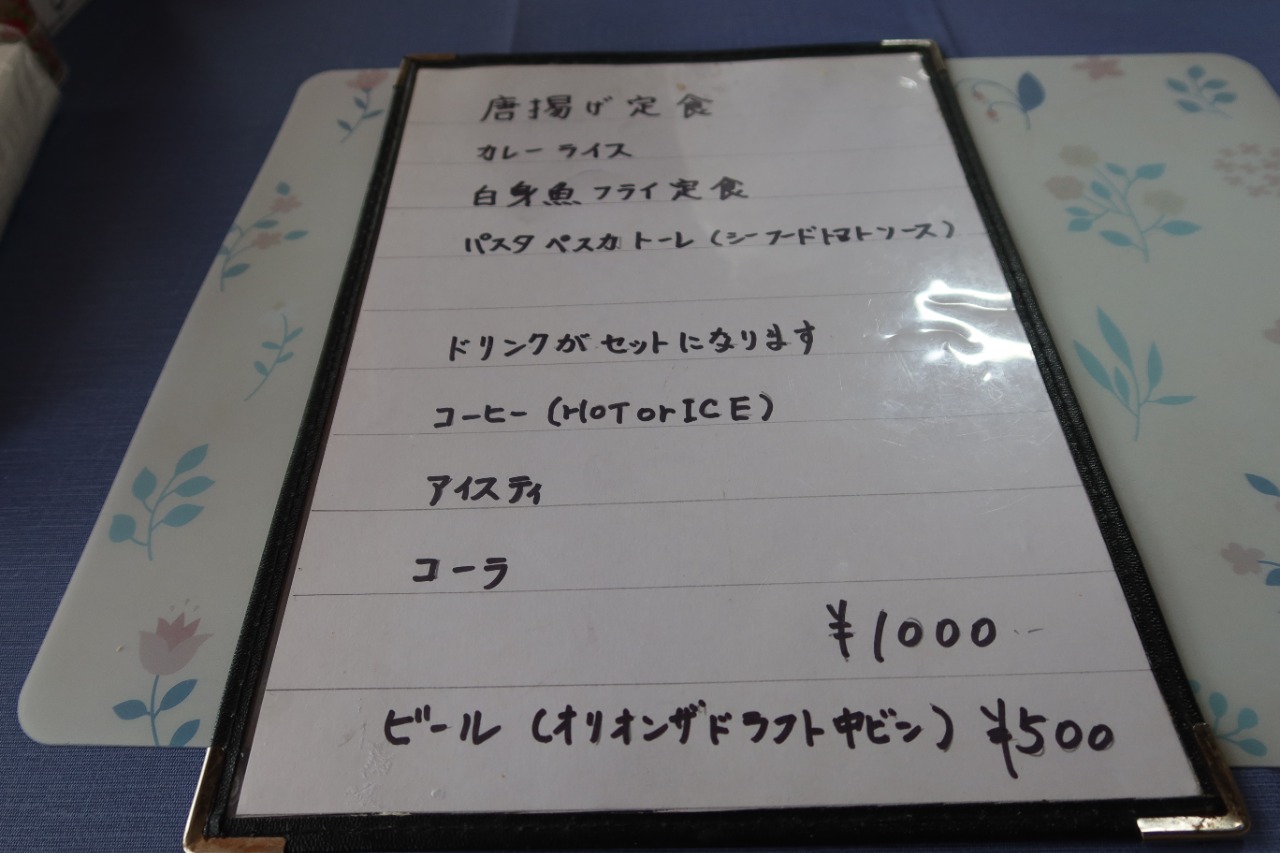 唐揚げ定食
カレーライス
白身魚フライ定食
パスタペスカトーレ(シーフードトマトソース)
ドリンクがセットになります
コーヒー(HOTorICE)
アイスティ
コーラ
¥1000
ビール(オリオンザドラフト中ビン)¥500